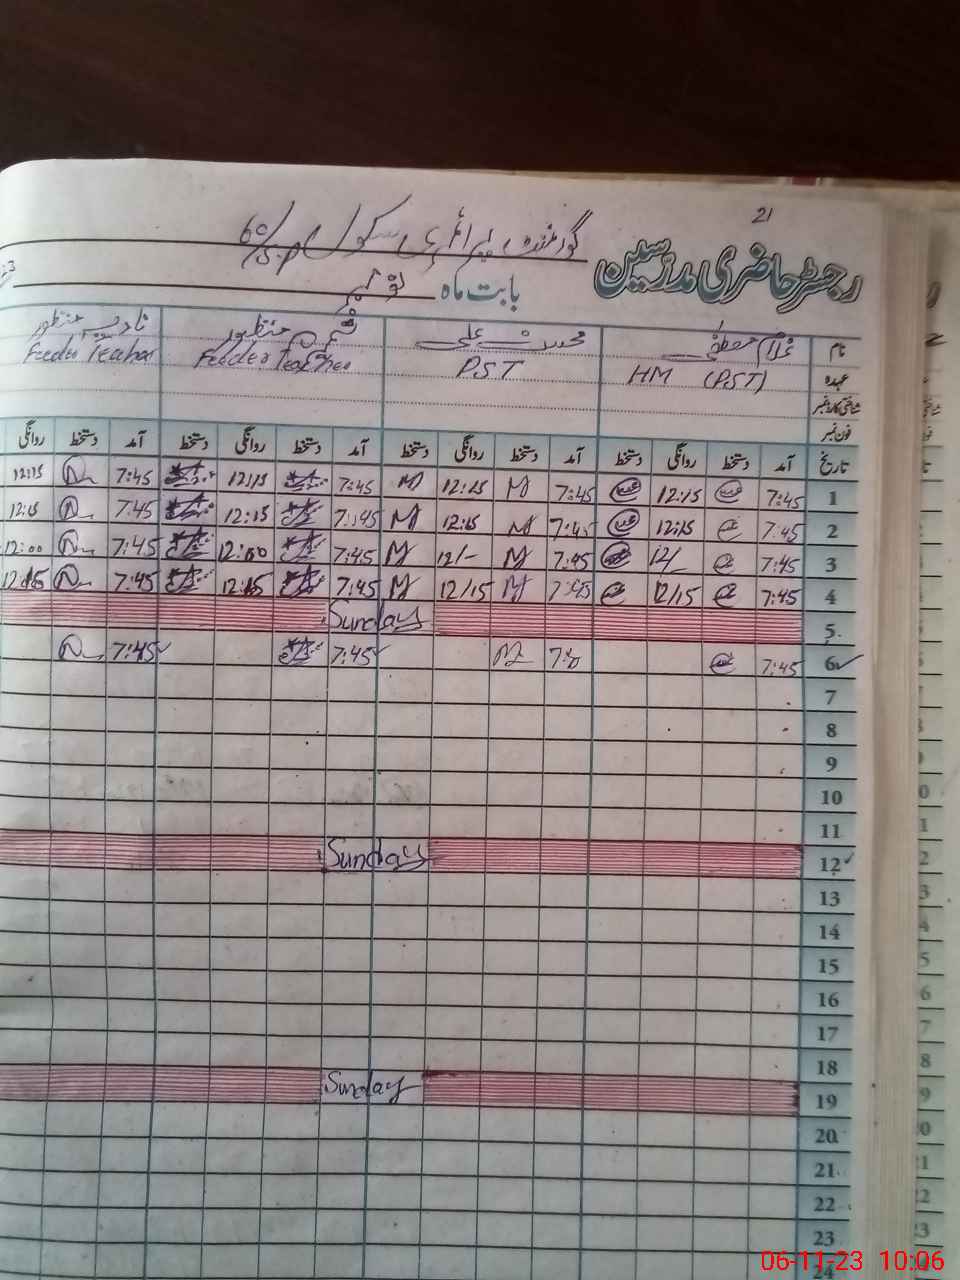 21
گورنمنٹ پرائمری سکول 60/5.P
رجسٹر حاضری مدرسین
بابت ماہ نومبر
نام غلام مصطفی محمد علی منظور نادیہ منظور
عہدہ HM (PST) PST Feeder Teacher Feeder Teacher
شناختی کارڈ نمبر
فون نمبر
تاریخ آمد دستخط روانگی دستخط آمد دستخط روانگی دستخط آمد دستخط روانگی دستخط آمد دستخط روانگی
1 7:45 12:15 7:45 12:15 7:45 12:15 7:45 12:15
2 7:45 12:15 7:45 12:15 7:45 12:15 7:45 12:15
3 7:45 12/- 7:45 12/- 7:45 12:00 7:45 12:00
4 7:45 12/15 7:45 12/15 7:45 12:15 7:45 12:15
5 Sunday
6 7:45 7:45 7:45
7
8
9
10
11
12 Sunday
13
14
15
16
17
18
19 Sunday
20
21
22
23
24
06-11-23 10:06